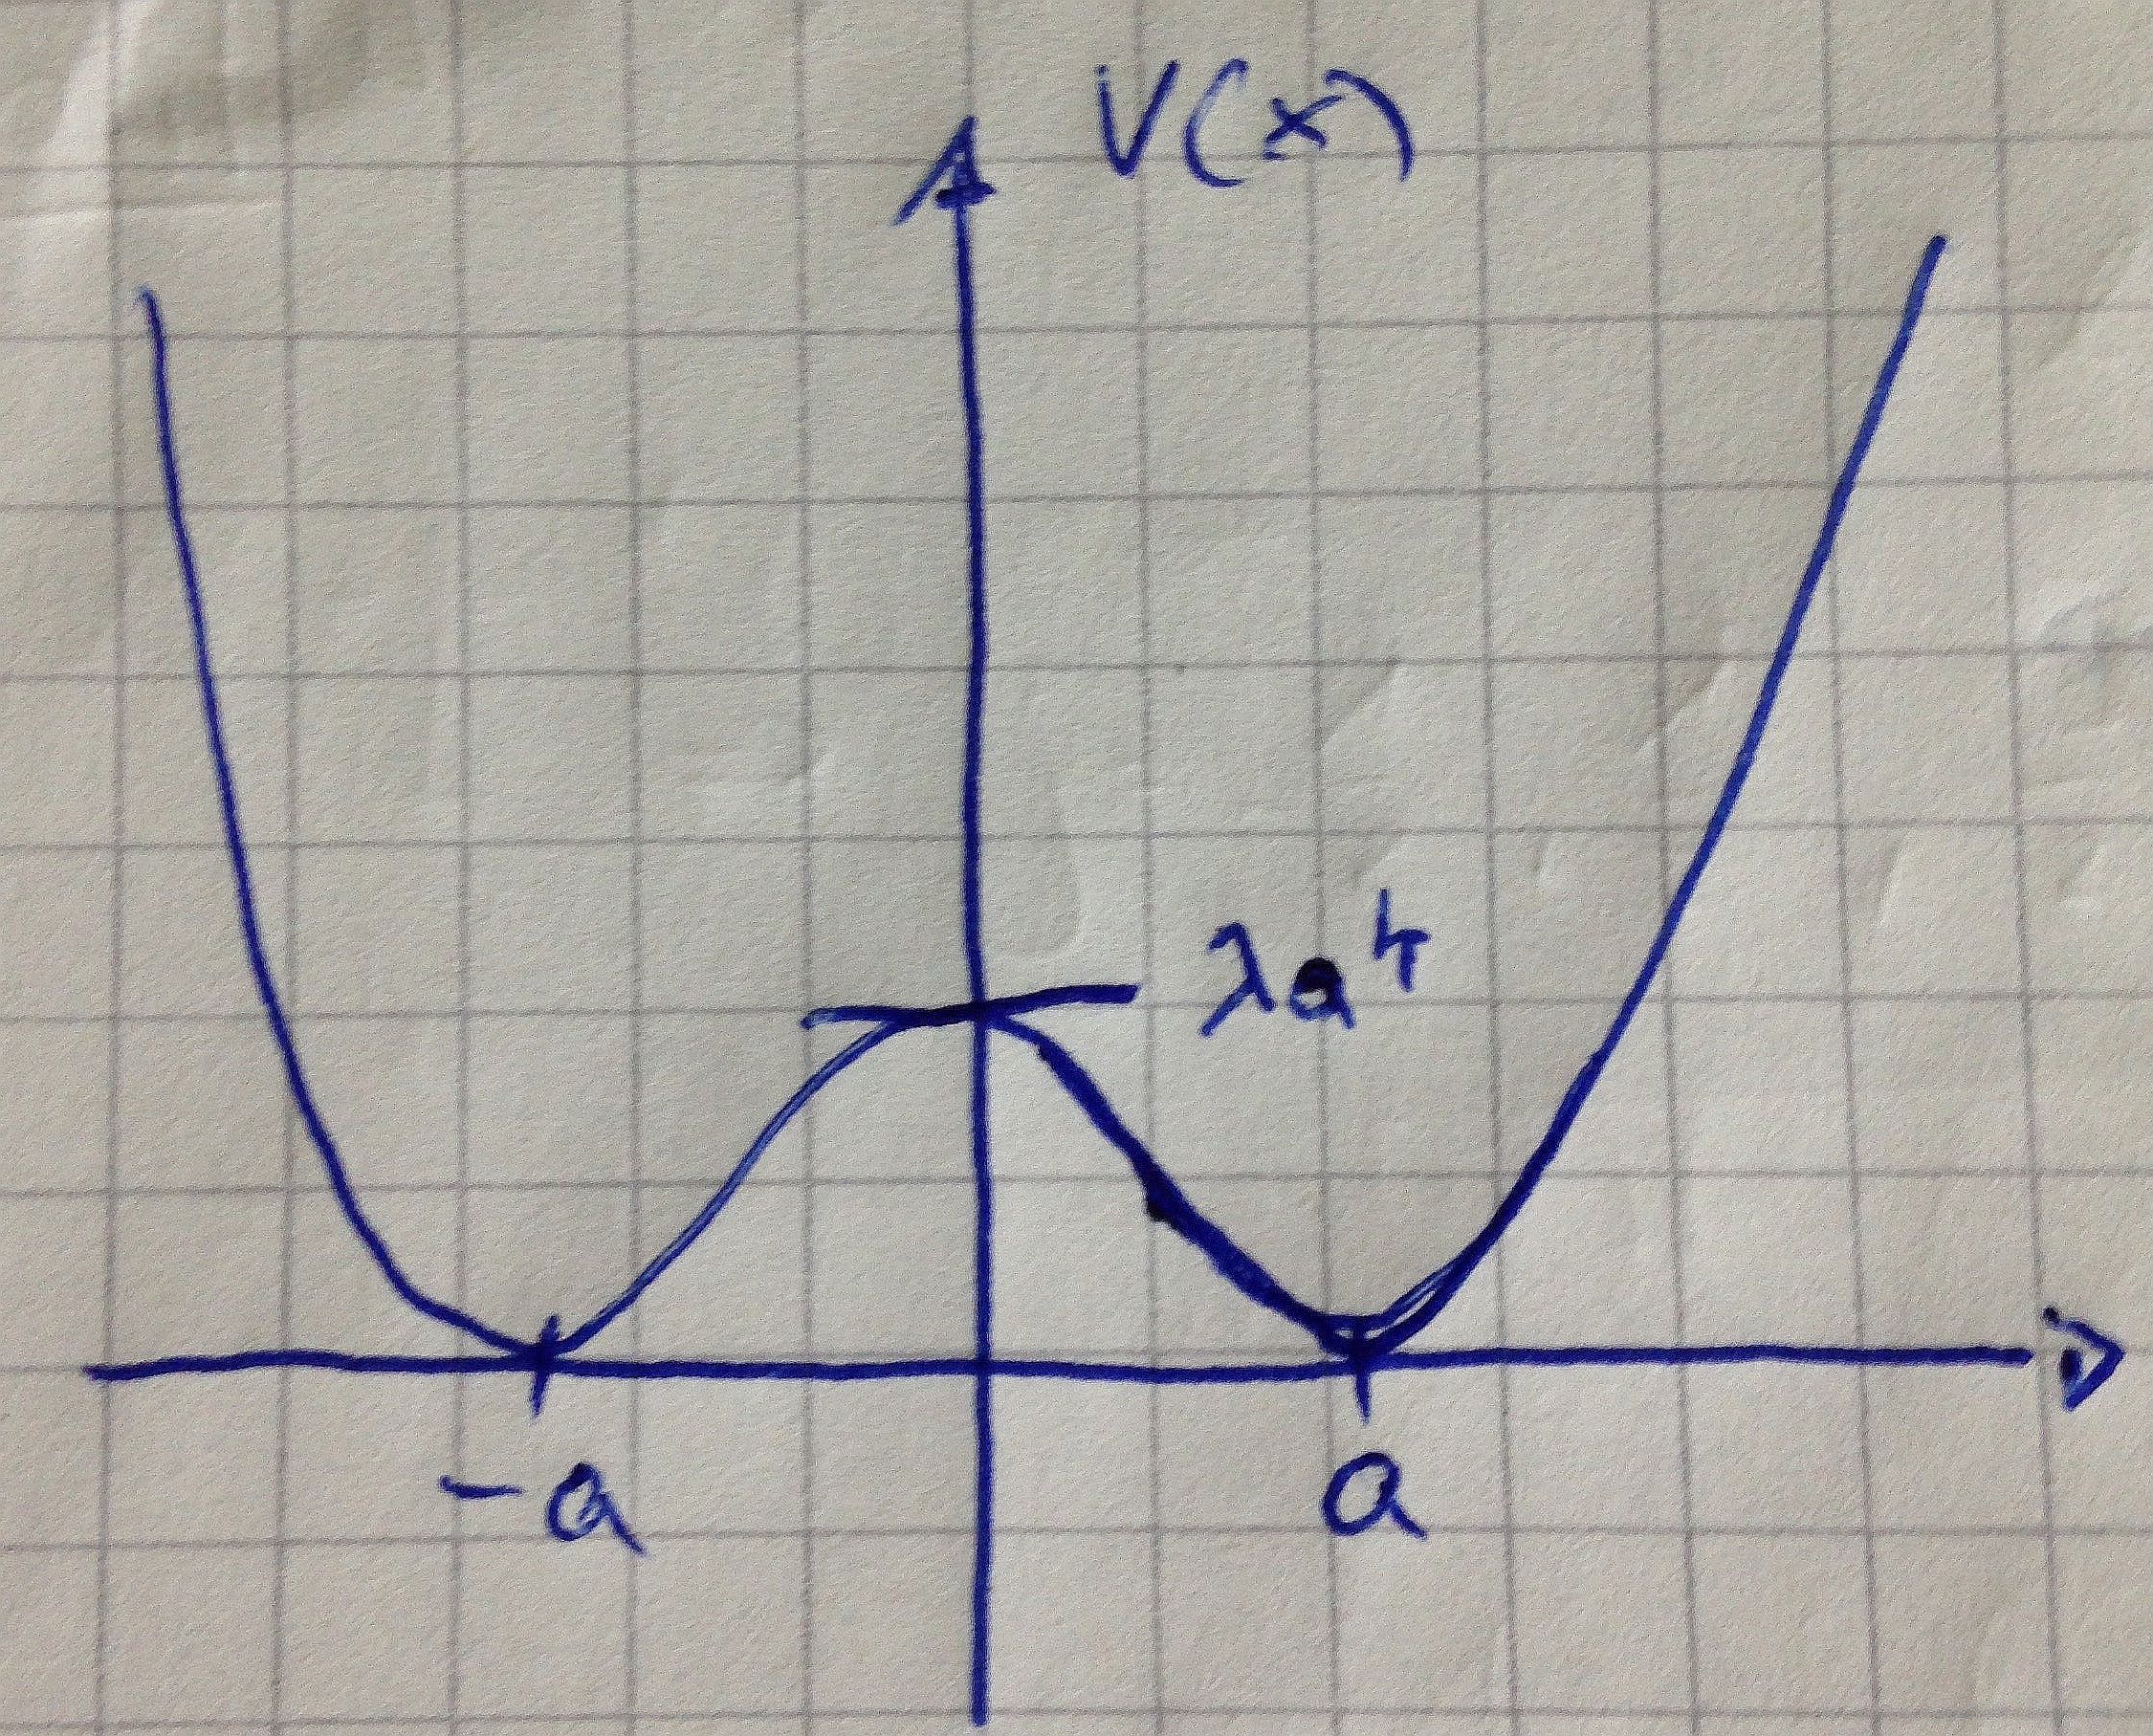 V(x)
λa⁴
-a
a